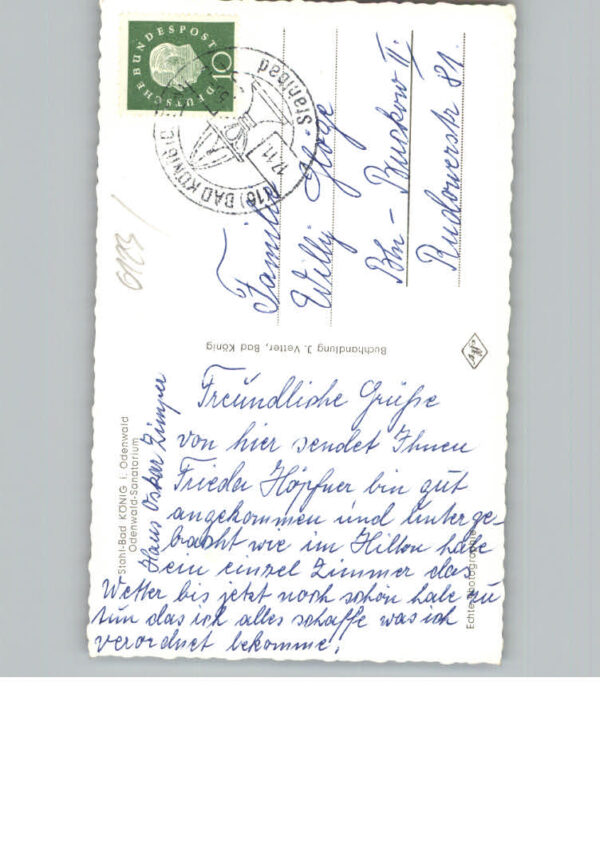 DEUTSCHE BUNDESPOST
10
(16) BAD KÖNIG
Stahlbad
17.11.
Familie
Willy Gloge
Bln - Buckow II.
Rudowerstr 81.
6103
Buchhandlung J. Vetter, Bad König
Stahl-Bad KÖNIG i. Odenwald
Odenwald-Sanatorium
Haus Oskar Zimper
Echte Photographie
Freundliche Grüße
von hier sendet Ihnen
Frieda Höpfner bin gut
angekommen und unterge-
bracht wie im Hilton habe
ein einzel Zimmer das
Wetter bis jetzt noch schön habe zu
tun das ich alles schaffe was ich
verordnet bekomme.